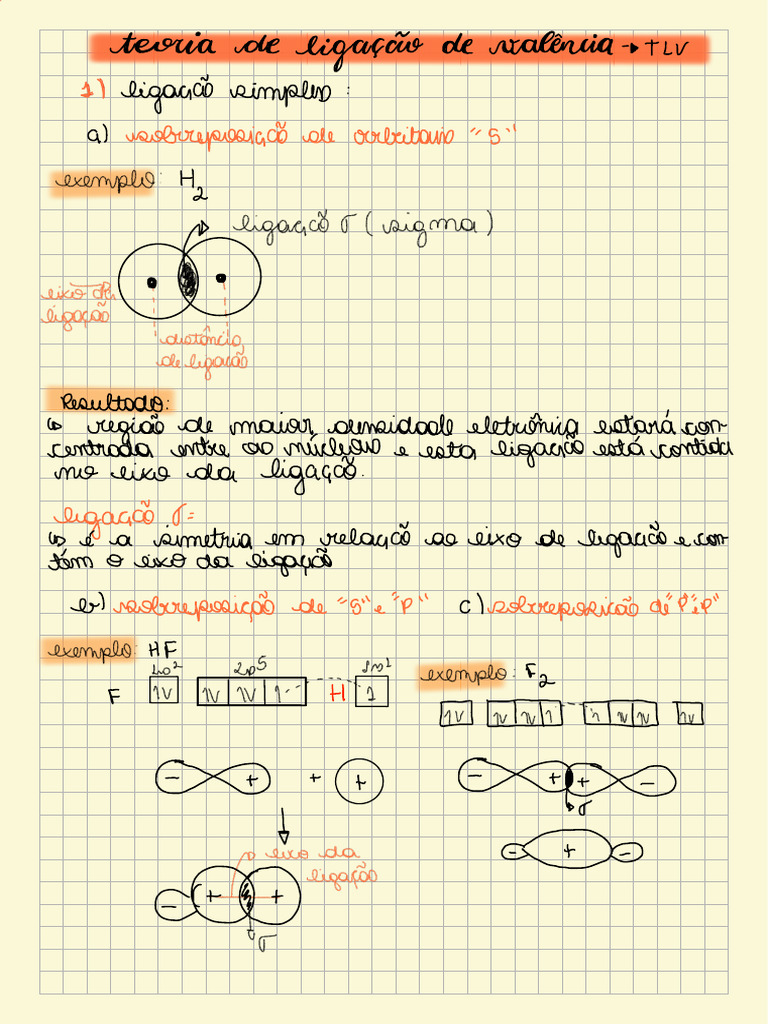 teoria de ligação de valência → TLV
1) ligação simples:
a) sobreposição de orbitais "S"
exemplo: H2
ligação σ (sigma)
eixo da
ligação
distância
de ligação
Resultado:
↳ região de maior densidade eletrônica estará con-
centrada entre os núcleos e esta ligação está contida
no eixo da ligação.
ligação σ=
↳ é a simetria em relação ao eixo de ligação e con-
tém o eixo da ligação
b) sobreposição de "S" e "P"
c) sobreposição de "P" e "P"
exemplo: HF
2s² 2p5 1s1
F 1V 1V 1V 1 H 1
exemplo: F2
1V 1V 1V 1 1 1V 1V 1V
- + + +
- + + -
σ
- + -
eixo da
ligação
- + +
σ